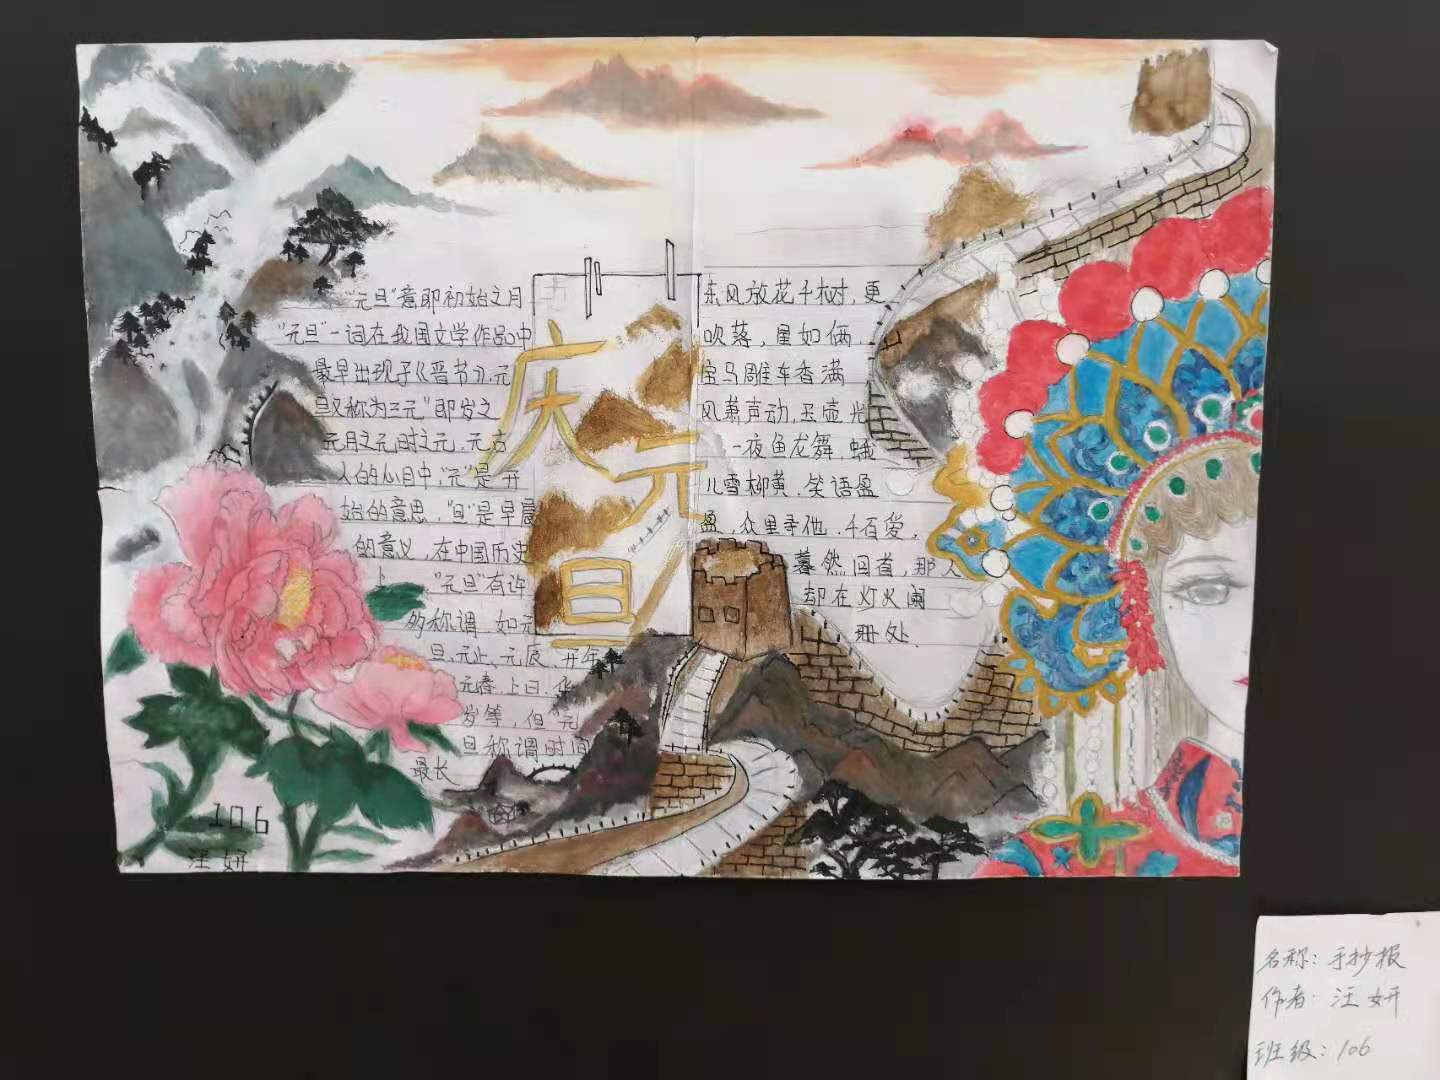 "元旦"意即初始之月
"元旦"一词在我国文学作品中
最早出现于《晋书》,元
旦又称为三元"即岁之
元月之元时之元.元古
人的心目中,"元"是开
始的意思,"旦"是早晨
的意义,在中国历史
上 "元旦"有许
多称谓 如元
旦、元止、元辰、开年
元春.上日.华
岁等,但"元
旦称谓时间
最长
庆
元
旦
东风放花千树,更
吹落,星如俩.
宝马雕车香满
风萧声动,玉壶光
一夜鱼龙舞,蛾
儿雪柳黄.笑语盈
盈,众里寻他.千百爱,
蓦然回首,那人
却在灯火阑
珊处.
106
汪妍
名称:手抄报
作者:汪妍
班级:106